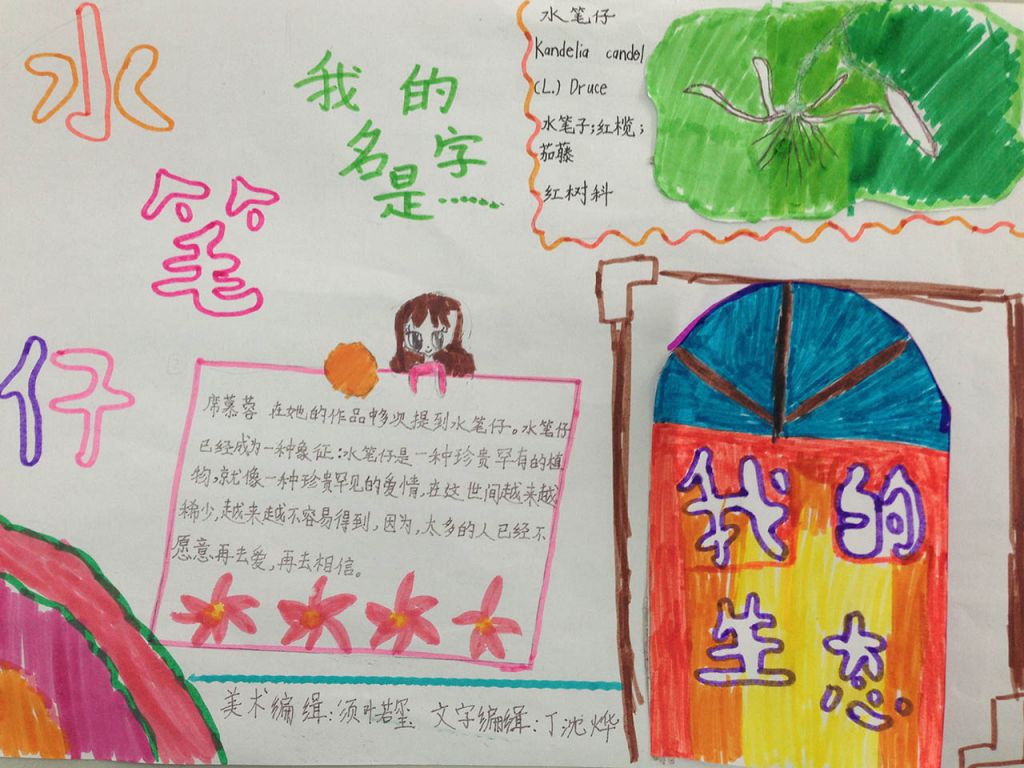 水笔仔
我的
名是字……
水笔仔
Kandelia candel
(L.) Druce
水笔子;红榄;
茄藤
红树科
席慕蓉 在她的作品中多次提到水笔仔。水笔仔
已经成为一种象征:水笔仔是一种珍贵罕有的植
物,就像一种珍贵罕见的爱情,在这世间越来越
稀少,越来越不容易得到,因为,太多的人已经不
愿意再去爱,再去相信。
我的
生态
美术编缉:须叶若玺 文字编缉:丁沈烨